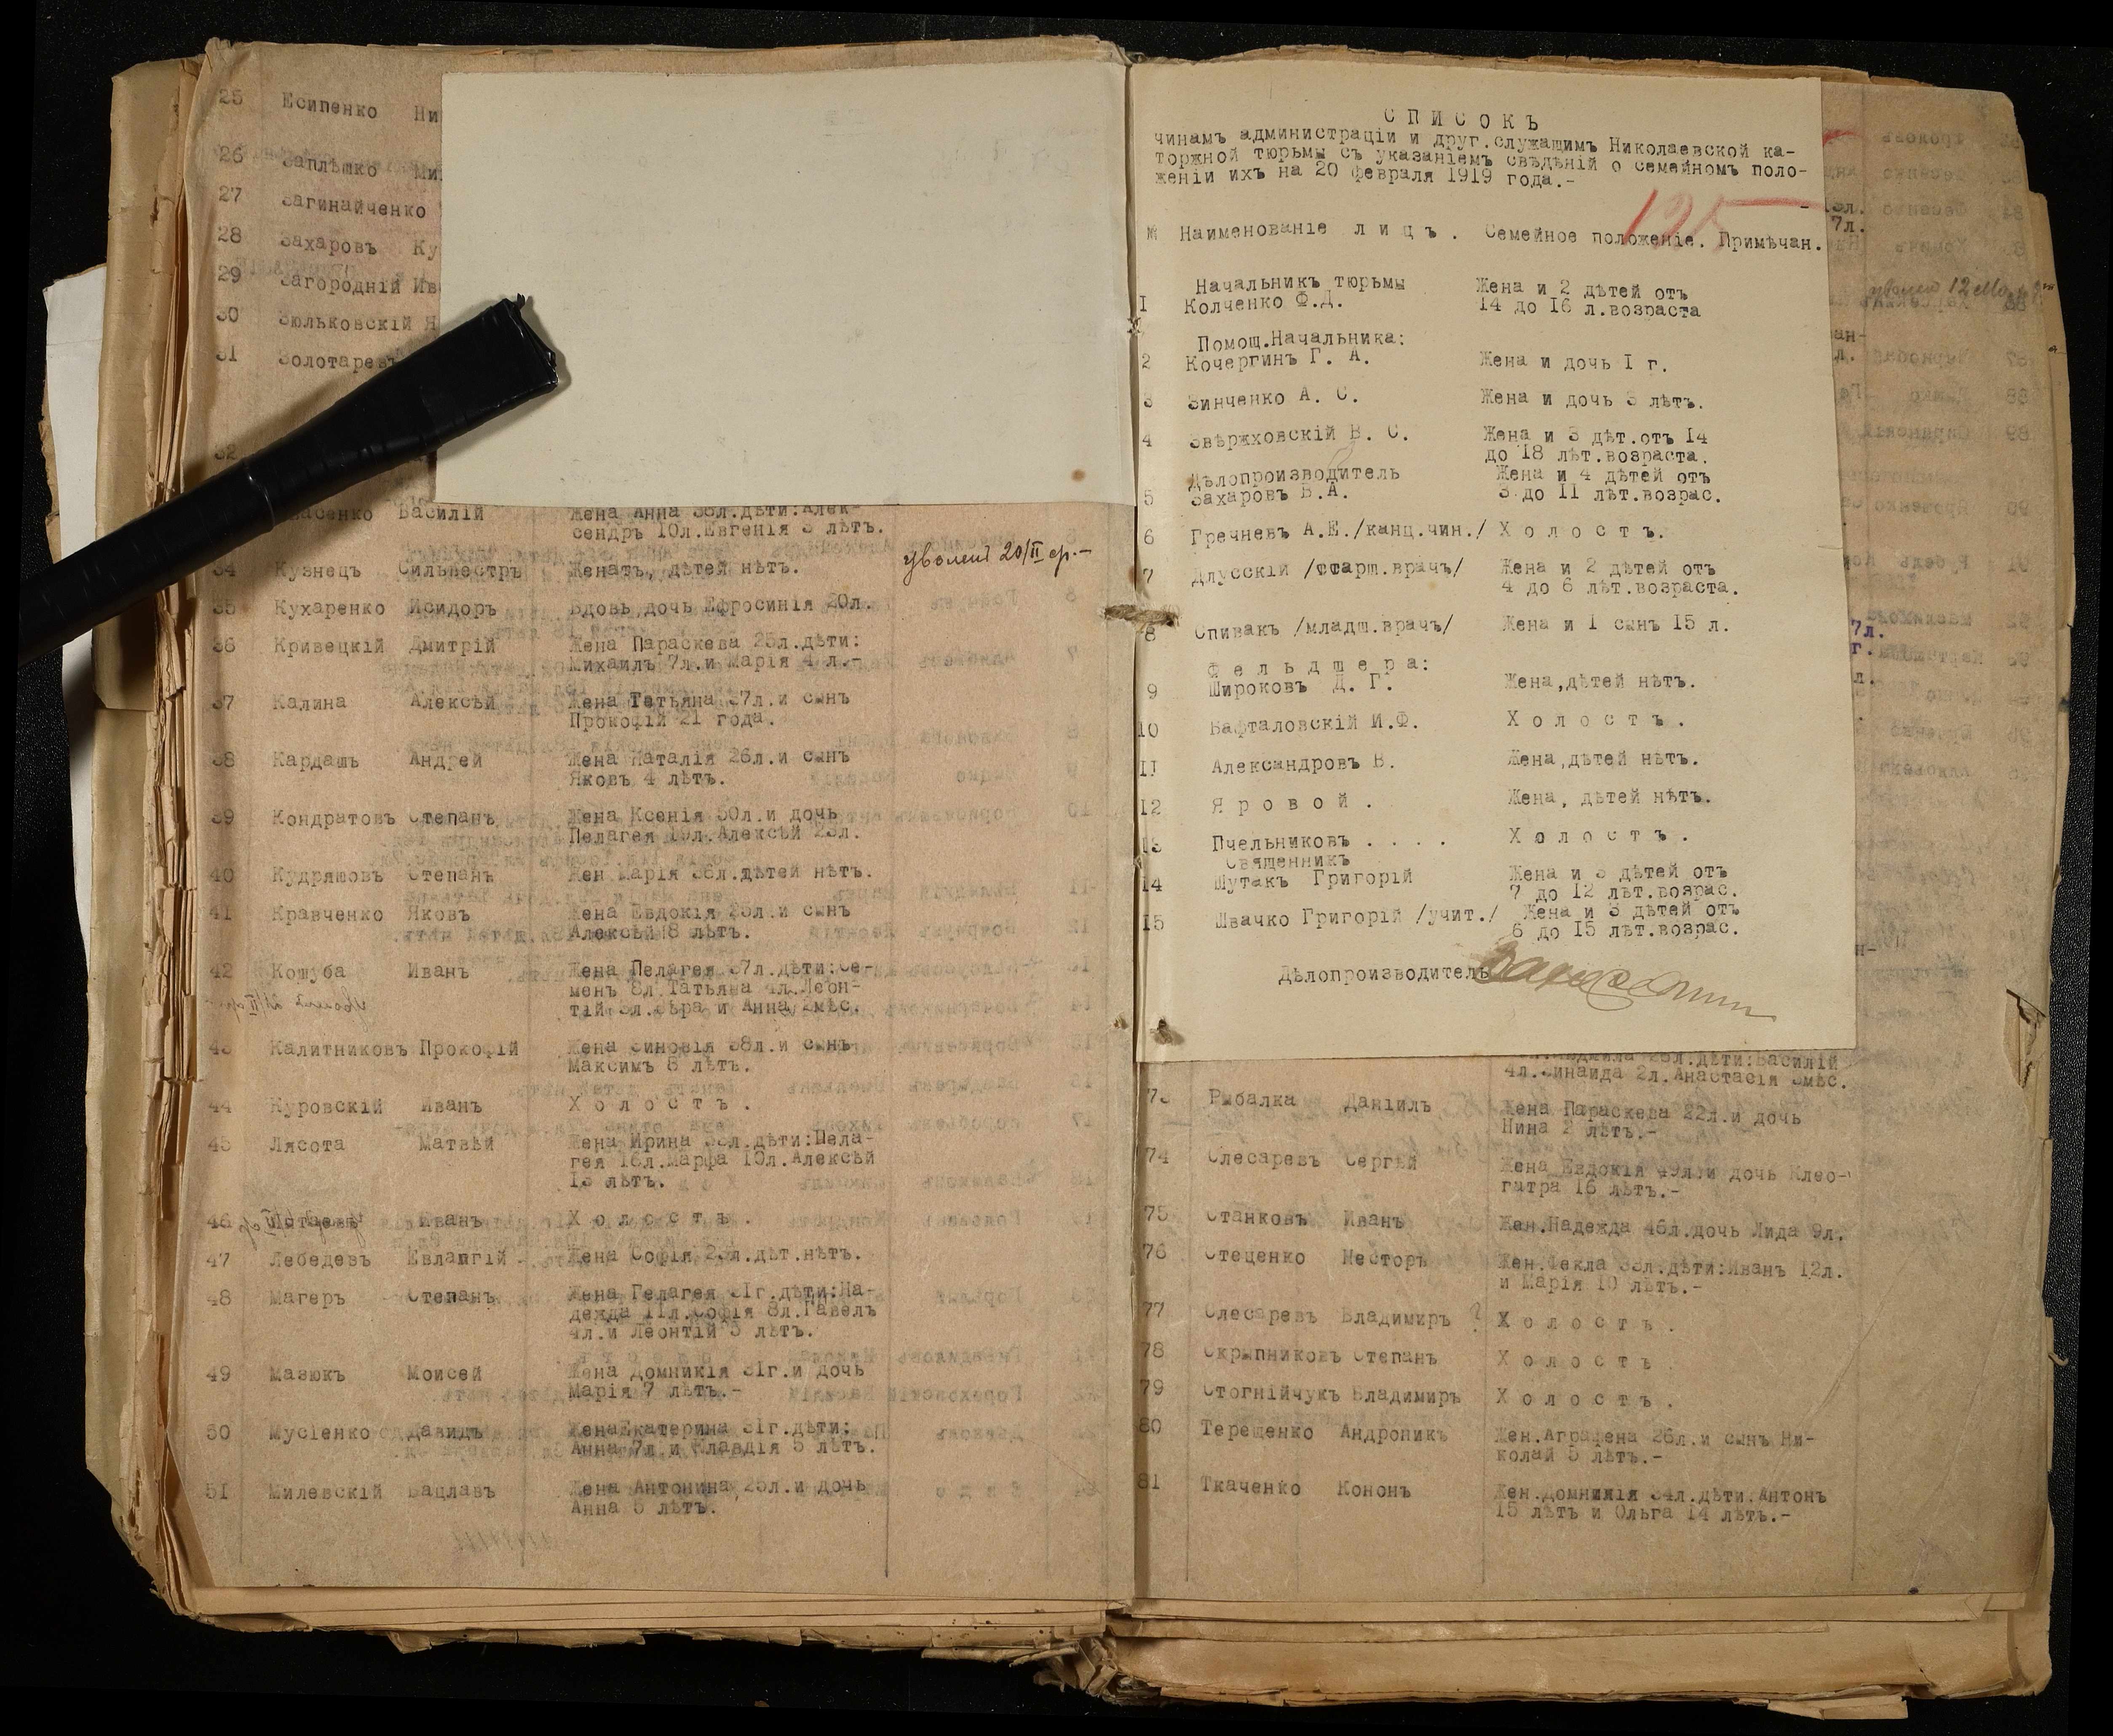 25 Есипенко Ни
26 Заплѣшко Ми
27 Загинайченко
28 Захаровъ Ку
29 Загородній Ив
30 Зюльковскій Я
31 Золотаревъ
32
Василій Жена Анна 38л.дѣти:Алек-
сендръ 10л.Евгенія 3 лѣтъ.
34 Кузнець Сильвестръ Женатъ, дѣтей нѣтъ. уволенъ 20/II ср.-
35 Кухаренко Исидоръ Вдовь,дочь Ефросинія 20л.
36 Кривецкій Дмитрій Жена Параскева 25л.дѣти:
Михаилъ 7л.и Марія 4 л.-
37 Калина Алексѣй Жена Татьяна 37л.и сынъ
Прокофій 21 года.
38 Кардашъ Андрей Жена Наталія 26л.и сынъ
Яковъ 4 лѣтъ.
39 Кондратовъ Степанъ Жена Ксенія 50л.и дочь
Пелагея 19л.Алексѣй 23л.
40 Кудряшовъ Степанъ Жен Марія 36л.дѣтей нѣтъ.
41 Кравченко Яковъ Жена Евдокія 35л.и сынъ
Алексѣй 8 лѣтъ.
42 Кошуба Иванъ Жена Пелагея 37л.дѣти:Се-
менъ 8л.Татьяна 4л.Леон-
тій 3л.Вѣра и Анна 2мѣс.
43 Калитниковъ Прокофій Жена Зиновія 38л.и сынъ
Максимъ 8 лѣтъ.
44 Куровскій Иванъ Х о л о с т ъ .
45 Лясота Матвѣй Жена Ирина 38л.дѣти:Пела-
гея 16л.Марфа 10л.Алексѣй
13 лѣтъ.
46 Иванъ Х о л о с т ъ .
47 Лебедевъ Евлампій Жена Софія 23л.дѣт.нѣтъ.
48 Магеръ Степанъ Жена Гелагея 31г.дѣти:На-
дежда 11л.Софія 8л.Гавелъ
4л.и Леонтій 3 лѣтъ.
49 Мазюкъ Моисей Жена Домникія 31г.и дочь
Марія 7 лѣтъ.-
50 Мусіенко Давидъ ЖенаЕкатерина 31г.дѣти:
Анна 7л.и Клавдія 5 лѣтъ.
51 Милевскій Вацлавъ Жена Антонина 25л.и дочь
Анна 5 лѣтъ.
С П И С О К Ъ
чинамъ администраціи и друг.служащимъ Николаевской ка-
торжной тюрьмы съ указаніемъ свѣдѣній о семейномъ поло-
женіи ихъ на 20 февраля 1919 года.-
125
№ Наименованіе л и ц ъ . Семейное положеніе. Примѣчан.
Начальникъ тюрьмы Жена и 2 дѣтей отъ
I Колченко Ф.Д. 14 до 16 л.возраста
Помощ.Начальника:
2 Кочергинъ Г. А. Жена и дочь I г.
3 Зинченко А. С. Жена и дочь 3 лѣтъ.
4 Звѣржховскій В. С. Жена и 3 дѣт.отъ I4
до 18 лѣт.возраста.
Дѣлопроизводитель Жена и 4 дѣтей отъ
5 Захаровъ В.А. 3 до II лѣт.возрас.
6 Гречневъ А.Е./канц.чин./ Х о л о с т ъ.
7 Длусскій /старш.врачъ/ Жена и 2 дѣтей отъ
4 до 6 лѣт.возраста.
8 Спивакъ /младш.врачъ/ Жена и 1 сынъ 15 л.
Ф е л ь д ш е р а:
9 Широковъ Д. Г. Жена,дѣтей нѣтъ.
10 Вафталовскій И.Ф. Х о л о с т ъ .
II Александровъ В. Жена,дѣтей нѣтъ.
I2 Я р о в о й . Жена, дѣтей нѣтъ.
I3 Пчельниковъ . . . . Х о л о с т ъ .
Священникъ
I4 Шутакъ Григорій Жена и 3 дѣтей отъ
7 до 12 лѣт.возрас.
I5 Швачко Григорій /учит./ Жена и 3 дѣтей отъ
6 до 15 лѣт.возрас.
Дѣлопроизводитель
дѣти:Василій
4л.Зинаида 2л.Анастасія 3мѣс.
73 Рыбалка Даніилъ Жена Параскева 22л.и дочь
Нина 2 лѣтъ.-
74 Слесаревъ Сергѣй Жена Евдокія 49л.и дочь Клео-
патра 16 лѣтъ.-
75 Станковъ Иванъ Жен.Надежда 46л.дочь Лида 9л.
76 Стеценко Несторъ Жен.Текла 33л.дѣти:Иванъ 12л.
и Марія 10 лѣтъ.-
77 Слесаревъ Владимиръ ? Х о л о с т ъ .
78 Скрыпниковъ Степанъ Х о л о с т ъ
79 Стогнійчукъ Владимиръ Х о л о с т ъ .
80 Терещенко Андроникъ Жен.Аграфена 26л.и сынъ Ни-
колай 5 лѣтъ.-
81 Ткаченко Кононъ Жен.Домникія 34л.дѣти.Антонъ
15 лѣтъ и Ольга 14 лѣтъ.-